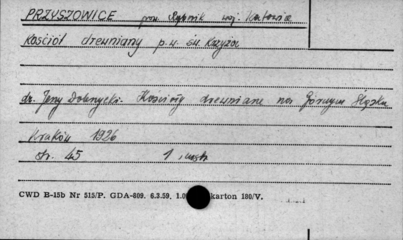 PRZYSZOWICE pow. Rybnik woj. Katowice
Kościół drewniany p.w. św. Krzyża
dr. Jerzy Dobrzycki. Kościoły drewniane na Górnym Śląsku
Kraków 1926
str. 45 1
CWD B-15b Nr 515/P. GDA-609. 6.3.59. 1.0 karton 180/V.